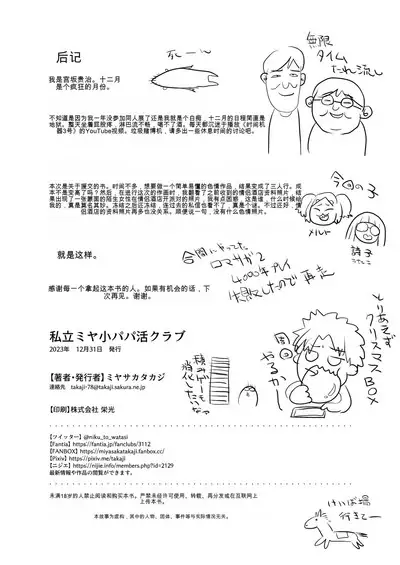 后记
我是宫坂贵治。十二月
是个疯狂的月份。
不知道是因为我一年没参加同人展了还是我就是个白痴，十二月的日程简直是
地狱。整天坐着屁股疼，淋巴流不畅，喝不了酒。每天都沉迷于播放《时间机
器3号》的YouTube视频。垃圾推博机，请多出一些休息时间的讨论吧。
本次是关于援交的书。时间不多，想要做一个简单易懂的色情作品，结果变成了三人行。成
就是这样。
感谢每一个拿起这本书的人。如果有机会的话，下
次再见。谢谢。
無限
タイム
たれ流し
今回の子
メルト
詩子
うたこ
合間にやってた
ロマサガ2
4000年プレイ
失敗したので再走
とりあえず
クリスマスBOX
周回
やるか
積みゲーも
消化したいなァ
けいば場
行きてー
私立ミヤ小パパ活クラブ
2023年　12月31日　発行
【著者・発行者】ミヤサカタカジ
連絡先　takaji-78@takaji.sakura.ne.jp
【印刷】株式会社 栄光
【ツイッター】@niku_to_watasi
【Fantia】https://fantia.jp/fanclubs/3112
【FANBOX】https://miyasakatakaji.fanbox.cc/
【Pixiv】https://pixiv.me/takaji
【ニジエ】https://nijie.info/members.php?id=2129
最新情報や作品の閲覧ができます。
未满18岁的人禁止阅读和购买本书。严禁未经许可使用、转载、再分发或在互联网上
上传本书。
本故事为虚构，其中的人物、团体、事件等与实际情况无关。